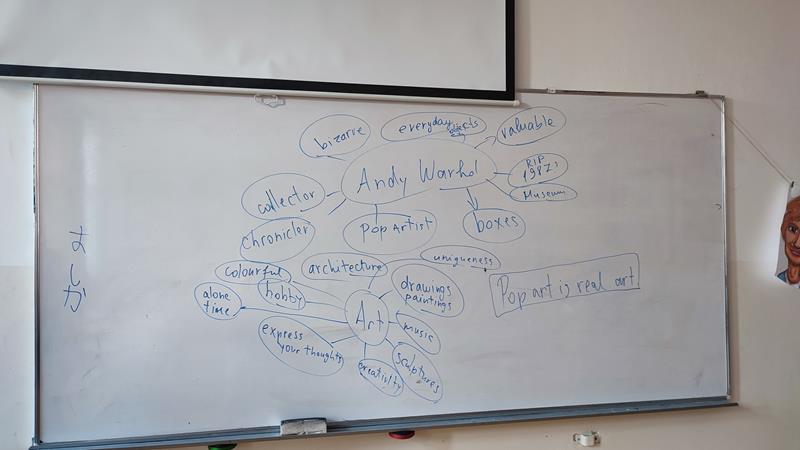 bizarre
everyday objects
valuable
Andy Warhol
RIP
1987
Museum
collector
chronicler
Pop Artist
boxes
uniqueness
architecture
colourful
hobby
alone
time
drawings
paintings
Art
music
express
your thoughts
creativity
sculptures
Pop art is real art